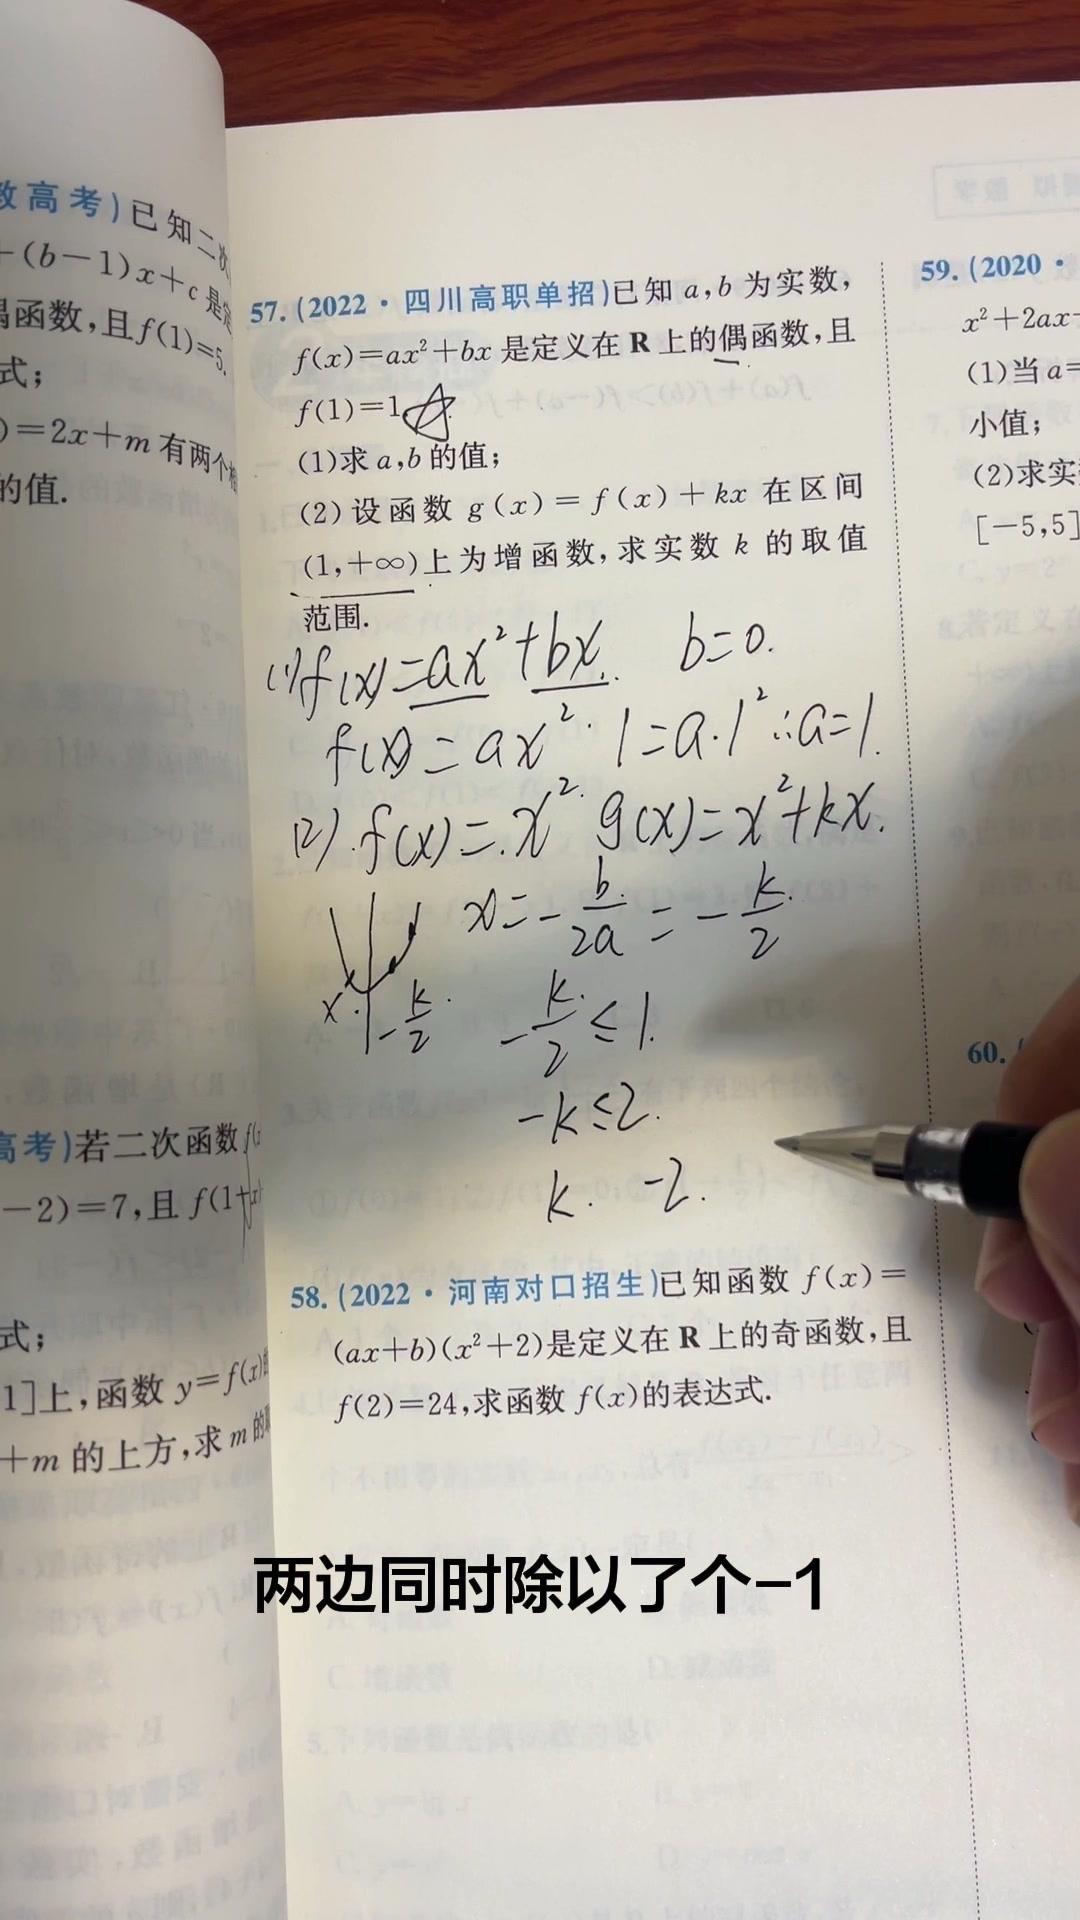 数高考)已知二次
+(b-1)x+c是定
偶函数,且f(1)=5.
式;
)=2x+m有两个相
的值.
高考)若二次函数f(x
-2)=7,且f(1+x)
式;
1]上,函数y=f(x)的
+m的上方,求m的取
57.(2022·四川高职单招)已知a,b为实数,
f(x)=ax²+bx是定义在R上的偶函数,且
f(1)=1
(1)求a,b的值;
(2)设函数g(x)=f(x)+kx在区间
(1,+∞)上为增函数,求实数k的取值
范围.
(1)f(x)=ax²+bx. b=0.
f(x)=ax². 1=a·1² ∴a=1.
(2).f(x)=x². g(x)=x²+kx.
x=-b/2a=-k/2
x. -k/2. -k/2≤1.
-k≤2.
k. -2.
58.(2022·河南对口招生)已知函数f(x)=
(ax+b)(x²+2)是定义在R上的奇函数,且
f(2)=24,求函数f(x)的表达式.
59.(2020·
x²+2ax-
(1)当a=
小值;
(2)求实
[-5,5]
60.(
两边同时除以了个-1